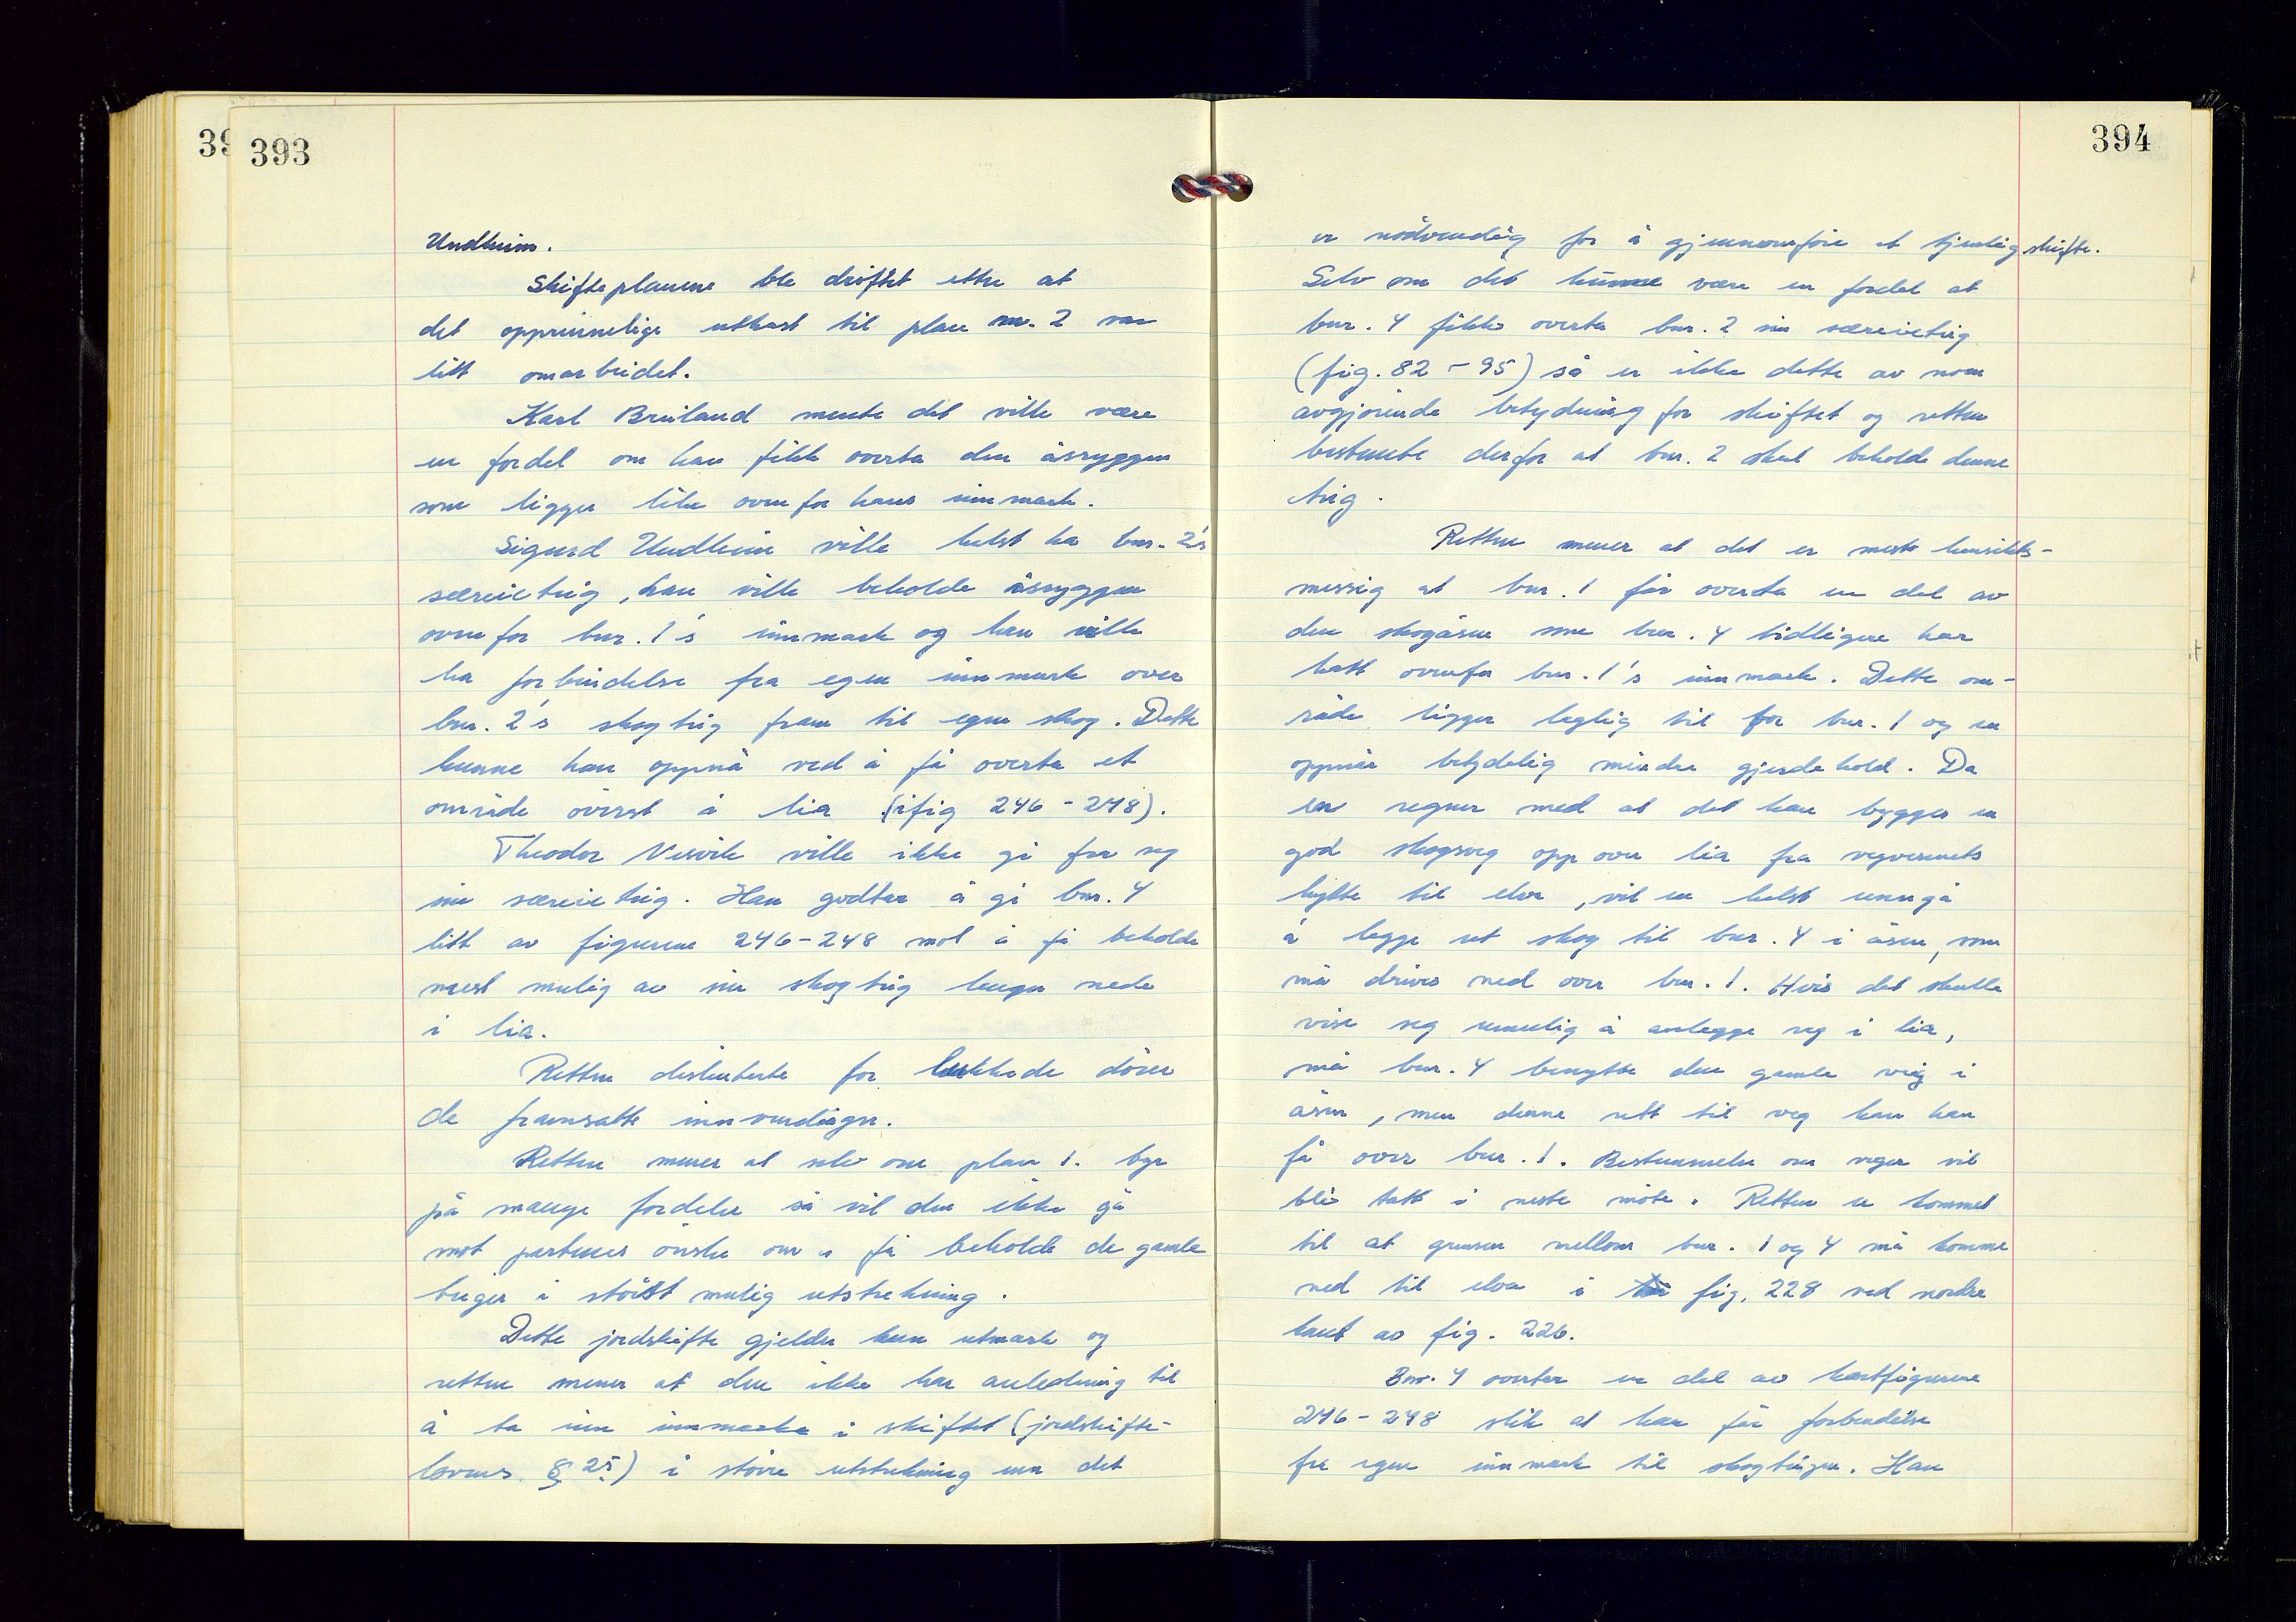 39
393
Undheim.
Skifteplanene ble drøftet etter at
det opprinnelige utkast til plan nr. 2 var
litt omarbeidet.
Karl Breiland mente det ville være
en fordel om han fikk overta den åsryggen
som ligger like ovenfor hans innmark.
Sigurd Undheim ville helst ha bnr. 2's
særeieteig, han ville beholde åsryggen
ovenfor bnr. 1's innmark og han ville
ha forbindelse fra egen innmark over
bnr. 2's skogteig fram til egen skog. Dette
kunne han oppnå ved å få overta et
område øverst i lia (ifig 246-248).
Theodor Nesvik ville ikke gi fra seg
sin særeieteig. Han godtar å gi bnr. 4
litt av figurene 246-248 mot å få beholde
mest mulig av sin skogteig lenger nede
i lia.
Retten diskuterte for lukkede dører
de framsatte innvendinger.
Retten mener at selv om plan 1. byr
på mange fordeler så vil den ikke gå
mot partenes ønske om å få beholde de gamle
teiger i størst mulig utstrekning.
Dette jordskifte gjelder kun utmark og
retten mener at den ikke har anledning til
å ta inn innmarka i skiftet (jordskifte-
lovens § 25) i større utstrekning enn det
394
er nødvendig for å gjennomføre et tjenlig skifte.
Selv om det kunne være en fordel at
bnr. 4 fikk overta bnr. 2 sin særeieteig
(fig. 82-95) så er ikke dette av noen
avgjørende betydning for skiftet og retten
bestemte derfor at bnr. 2 skal beholde denne
teig.
Retten mener at det er mest hensikts-
messig at bnr. 1 får overta en del av
den skogåsen som bnr. 4 tidligere har
hatt ovenfor bnr. 1's innmark. Dette om-
råde ligger laglig til for bnr. 1 og en
oppnår betydelig mindre gjerdehold. Da
en regner med at det kan bygges en
god skogsveg opp over lia fra vegvesenets
hytte til elva, vil en helst unngå
å legge ut skog til bnr. 4 i åsen, som
må drives ned over bnr. 1. Hvis det skulle
vise seg umulig å anlegge veg i lia,
må bnr. 4 benytte den gamle veg i
åsen, men denne rett til veg kan han
få over bnr. 1. Bestemmelse om veger vil
bli tatt i neste møte. Retten er kommet
til at grensen mellom bnr. 1 og 4 må komme
ned til elva i fig. 228 ved nordre
kant av fig. 226.
Bnr. 4 overtar en del av kartfigurene
246-248 slik at han får forbindelse
fra egen innmark til skogteigen. Han